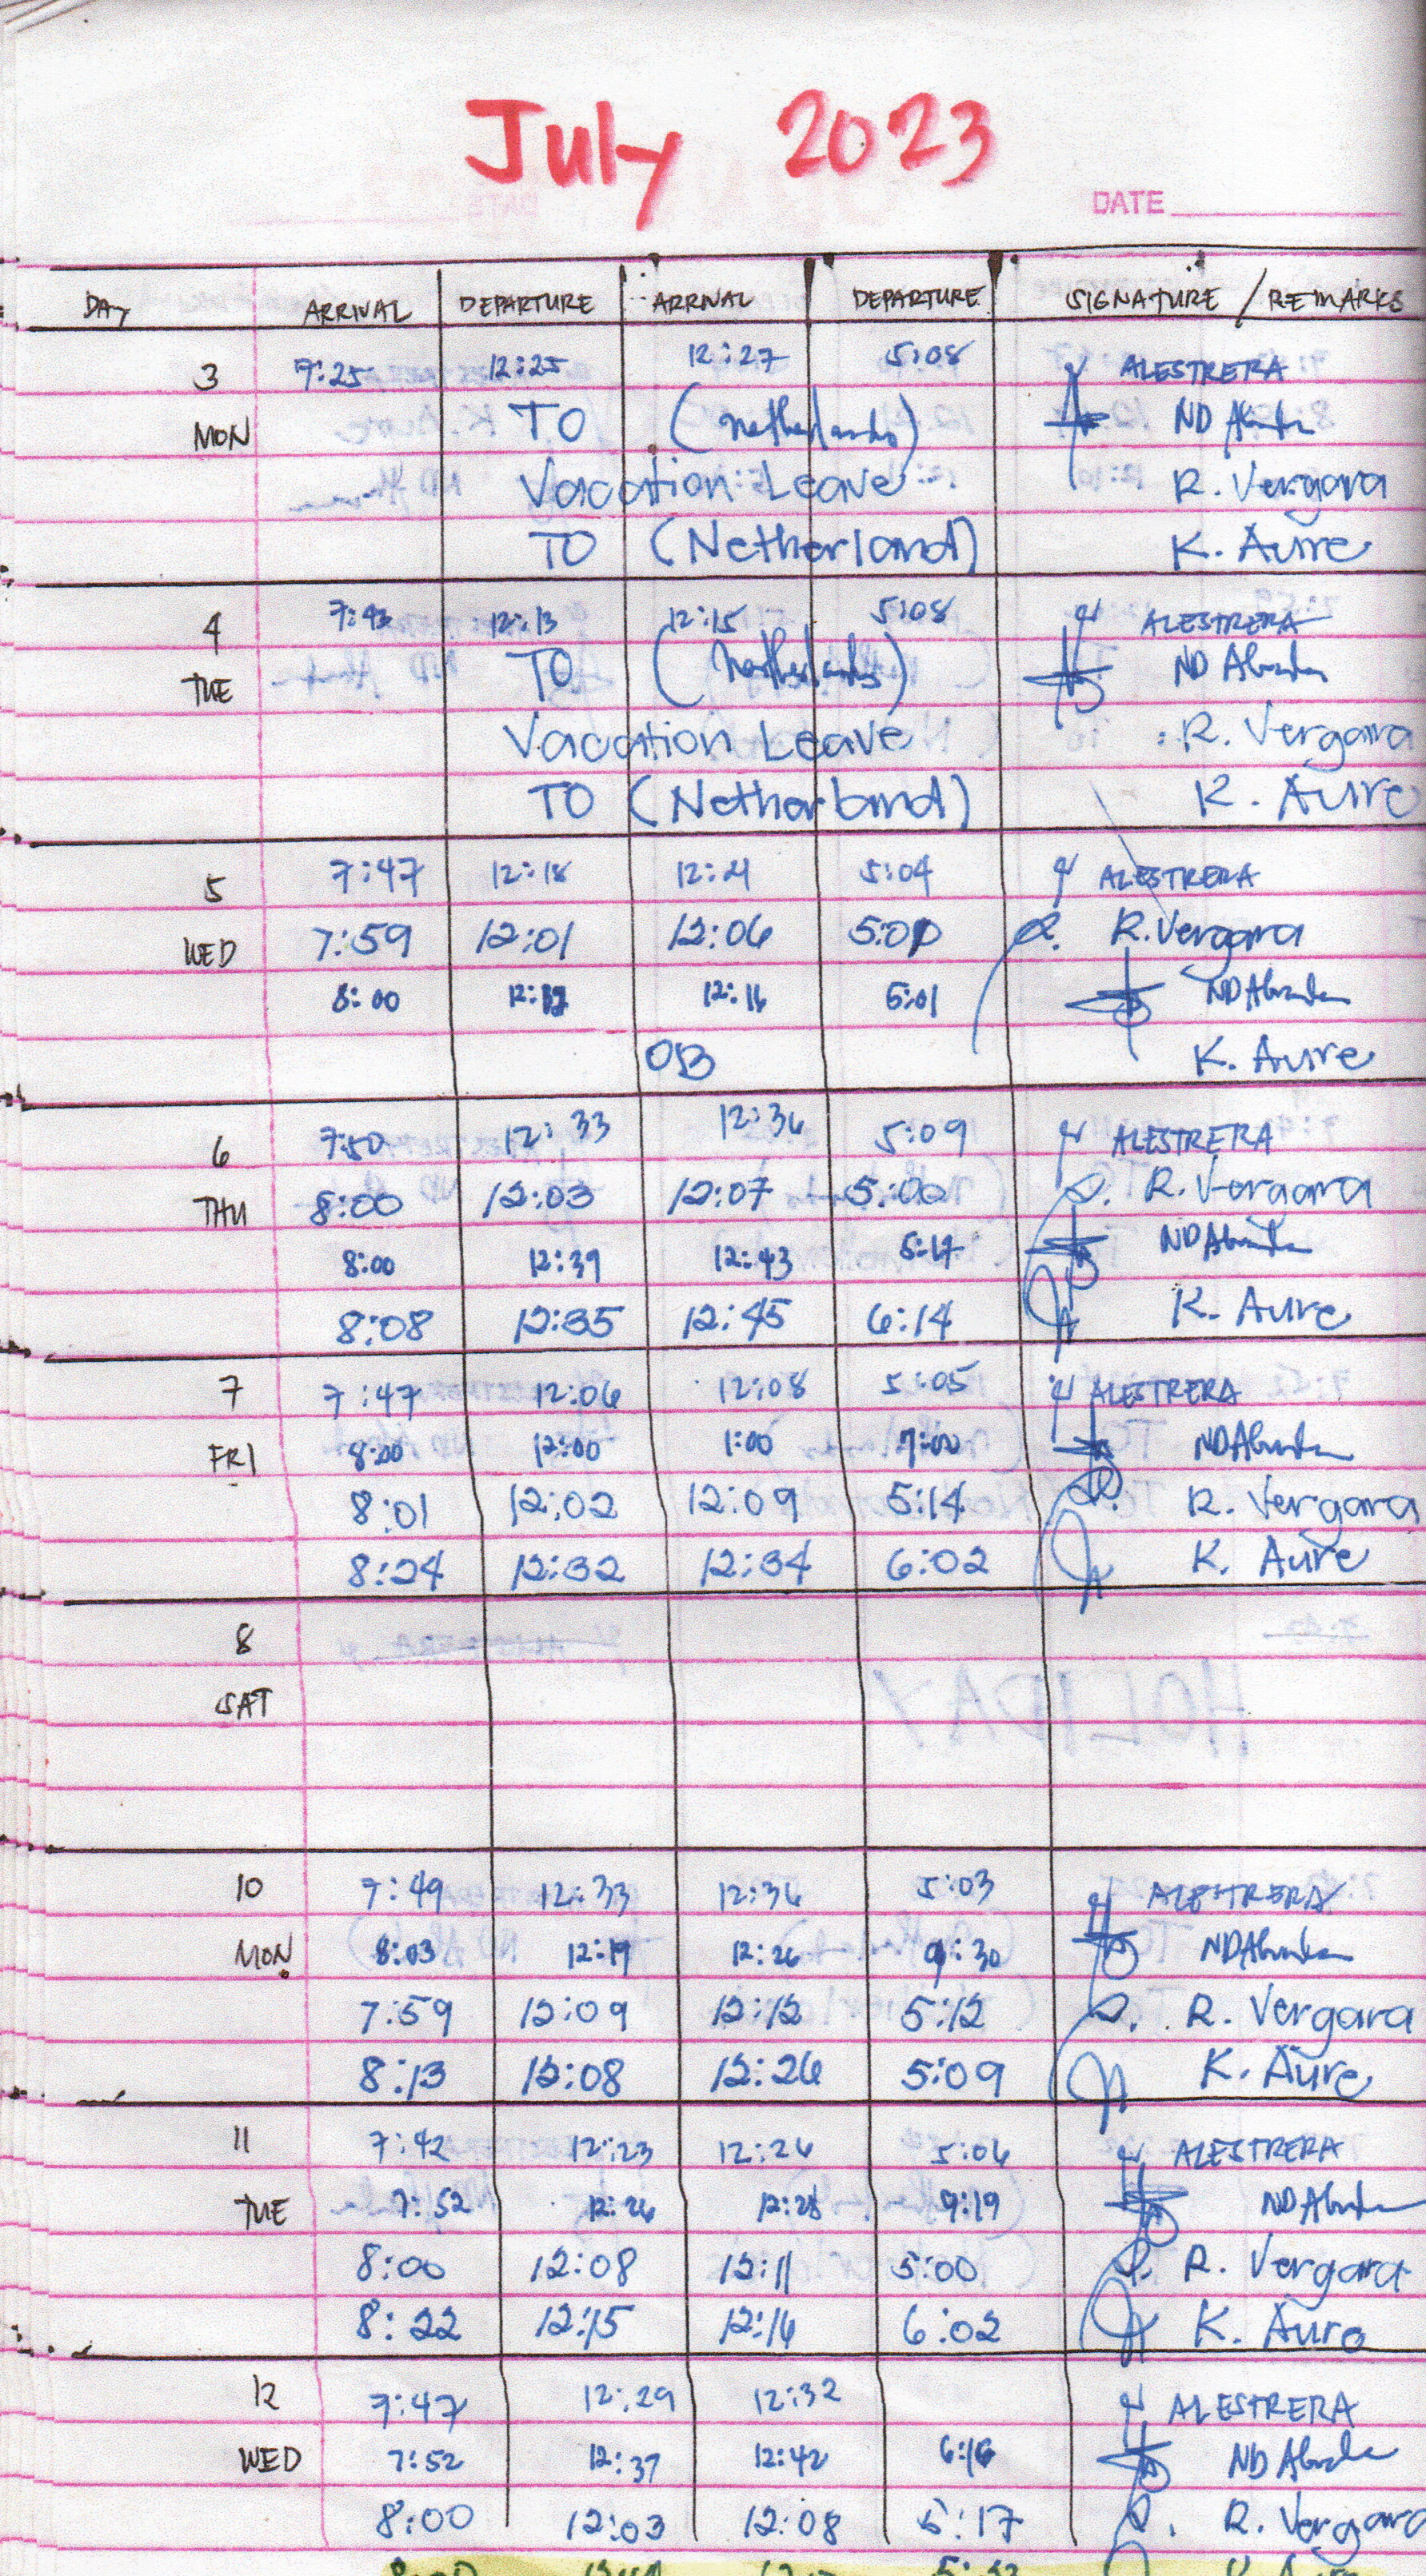 July 2023
DATE
DAY ARRIVAL DEPARTURE ARRIVAL DEPARTURE SIGNATURE / REMARKS
3 7:25 12:25 12:27 5:08 ALESTRERA
MON TO (Netherlands) ND
Vacation Leave R. Vergara
TO (Netherland) K. Aure
4 7:43 12:13 12:15 5:08 ALESTRERA
TUE TO (Netherlands) ND
Vacation Leave R. Vergara
TO (Netherland) K. Aure
5 7:47 12:18 12:21 5:04 ALESTRERA
WED 7:59 12:01 12:06 5:00 R. Vergara
8:00 12:16 5:01 ND
OB K. Aure
6 7:50 12:33 12:36 5:09 ALESTRERA
THU 8:00 12:03 12:07 5:00 R. Vergara
8:00 12:39 12:43 5:17 ND
8:08 12:35 12:45 6:14 K. Aure
7 7:47 12:06 12:08 5:05 ALESTRERA
FRI 8:00 12:00 1:00 7:00 ND
8:01 12:02 12:09 5:14 R. Vergara
8:24 12:32 12:34 6:02 K. Aure
8
SAT
10 7:49 12:33 12:36 5:03 ALESTRERA
MON 8:03 12:19 12:26 9:30 ND
7:59 12:09 12:12 5:12 R. Vergara
8:13 12:08 12:26 5:09 K. Aure
11 7:42 12:23 12:26 5:06 ALESTRERA
TUE 7:52 12:26 12:28 9:19 ND
8:00 12:08 12:11 5:00 R. Vergara
8:22 12:15 12:16 6:02 K. Aure
12 7:47 12:29 12:32 ALESTRERA
WED 7:52 12:37 12:42 6:16 ND
8:00 12:03 12:08 5:17 R. Vergara